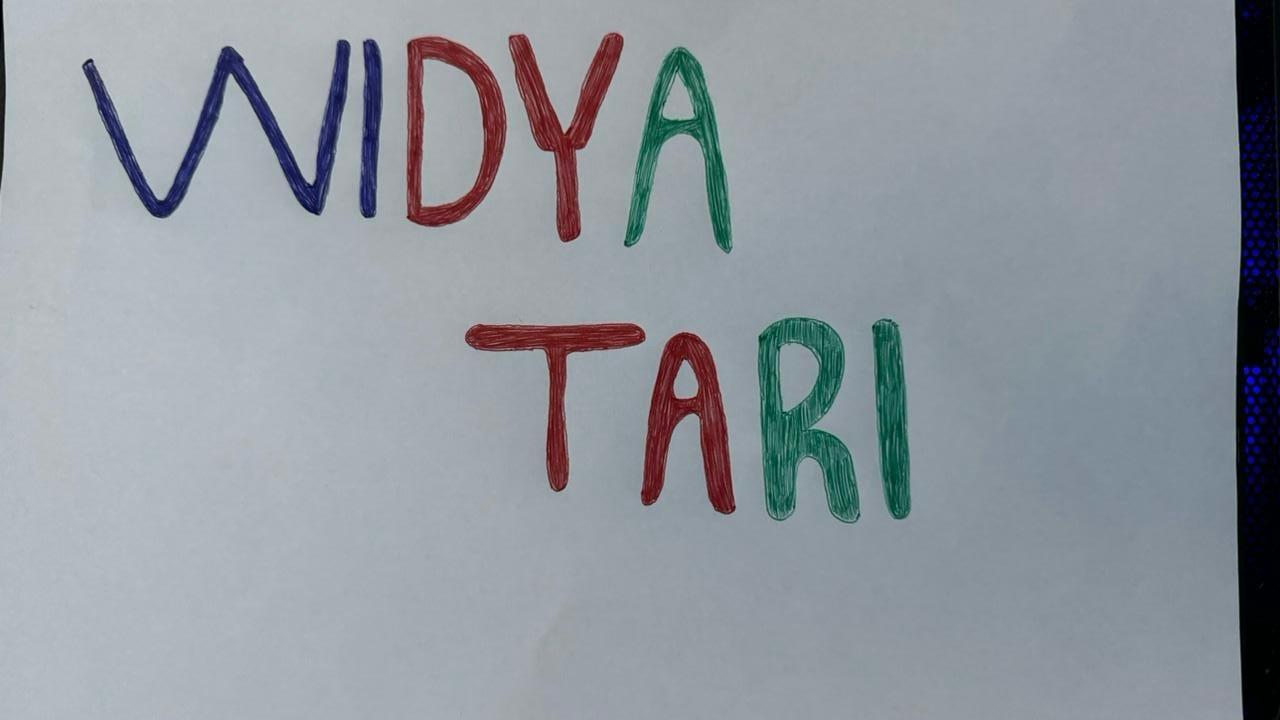 WIDYA
TARI